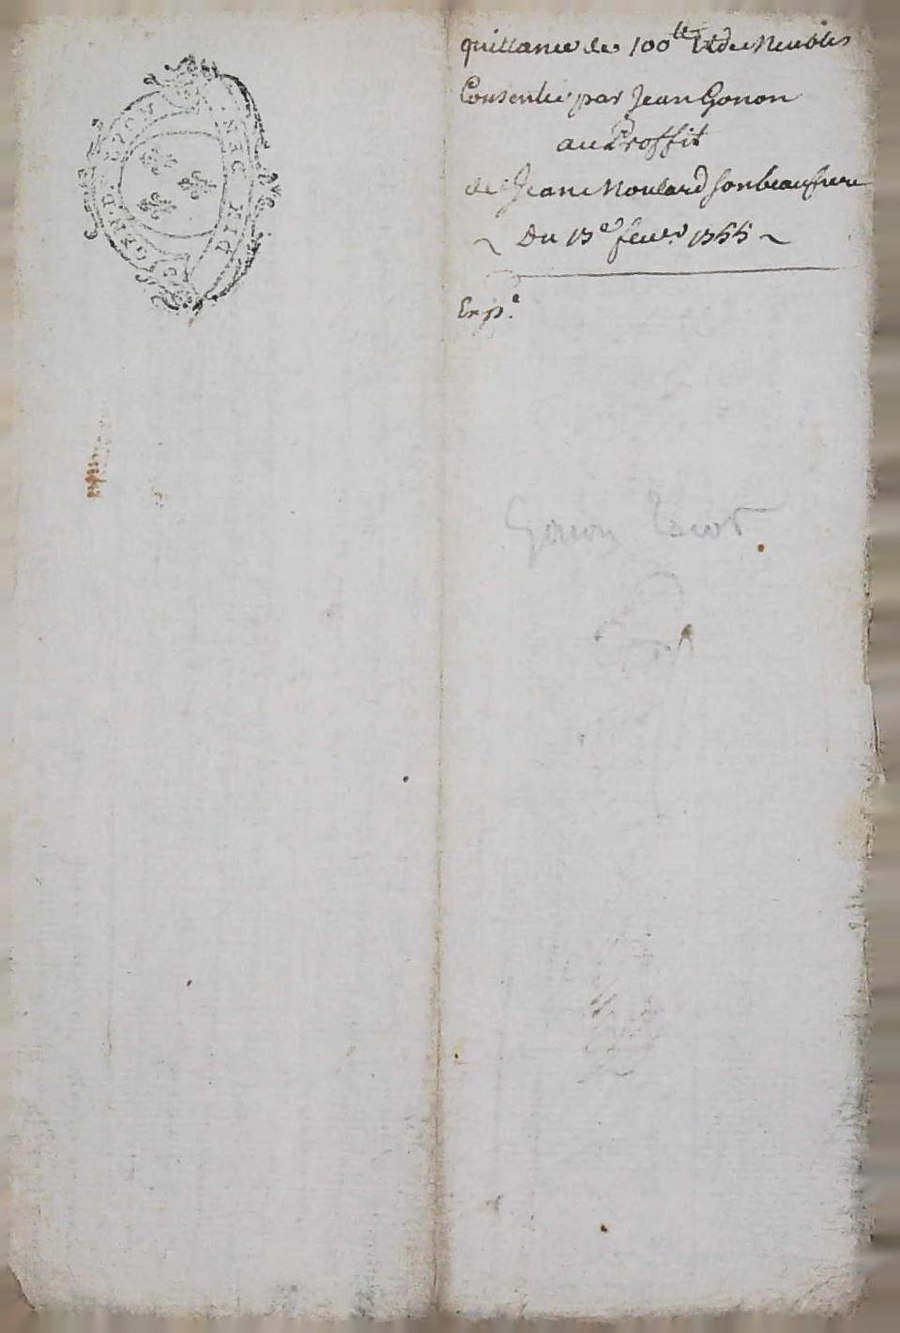 GEN. DE LYON
DIX DEN. NEC
quittance de 100tt Et de Meubles
Consentie par Jean Gonon
au Proffit
de Jean Moulard son beaufrere
~ Du 13e fevr. 1755 ~
Exp.e
Gonon